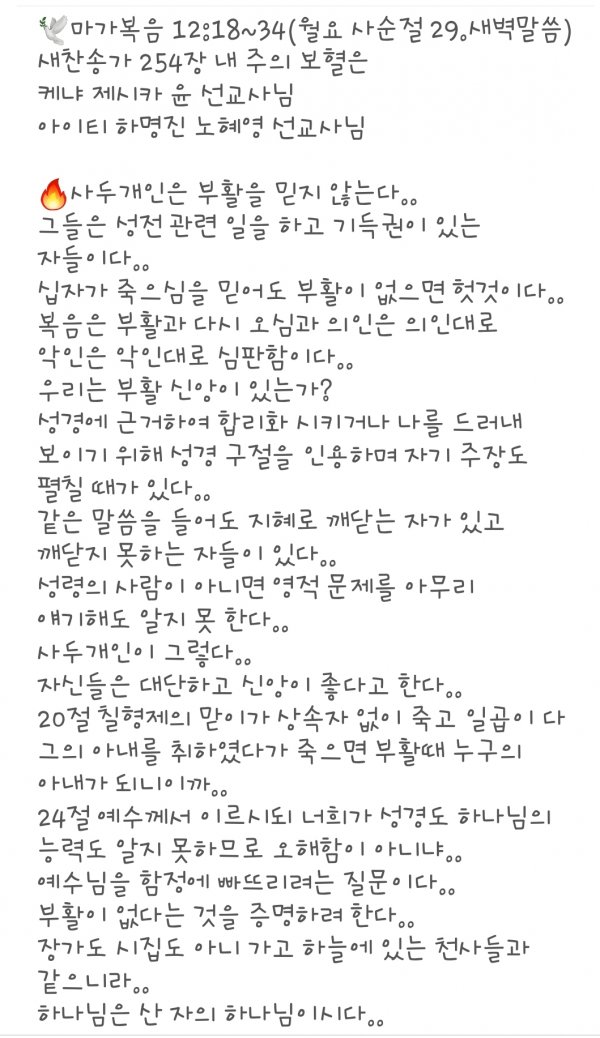 🕊마가복음 12:18~34(월요 사순절 29.새벽말씀)
새찬송가 254장 내 주의 보혈은
케냐 제시카 윤 선교사님
아이티 하명진 노혜영 선교사님
🔥사두개인은 부활을 믿지 않는다..
그들은 성전 관련 일을 하고 기득권이 있는
자들이다..
십자가 죽으심을 믿어도 부활이 없으면 헛것이다..
복음은 부활과 다시 오심과 의인은 의인대로
악인은 악인대로 심판함이다..
우리는 부활 신앙이 있는가?
성경에 근거하여 합리화 시키거나 나를 드러내
보이기 위해 성경 구절을 인용하며 자기 주장도
펼칠 때가 있다..
같은 말씀을 들어도 지혜로 깨닫는 자가 있고
깨닫지 못하는 자들이 있다..
성령의 사람이 아니면 영적 문제를 아무리
얘기해도 알지 못 한다..
사두개인이 그렇다..
자신들은 대단하고 신앙이 좋다고 한다..
20절 칠형제의 맏이가 상속자 없이 죽고 일곱이 다
그의 아내를 취하였다가 죽으면 부활때 누구의
아내가 되니이까..
24절 예수께서 이르시되 너희가 성경도 하나님의
능력도 알지 못하므로 오해함이 아니냐..
예수님을 함정에 빠뜨리려는 질문이다..
부활이 없다는 것을 증명하려 한다..
장가도 시집도 아니 가고 하늘에 있는 천사들과
같으니라..
하나님은 산 자의 하나님이시다..